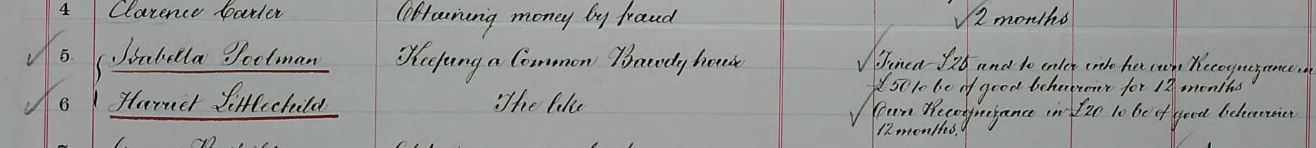 4 Clarence Carter Obtaining money by fraud 2 months
5. Isabella Poolman Keeping a Common Bawdy house Fined £25 and to enter into her own Recognizance in
£50 to be of good behaviour for 12 months
6 Harriet Littlechild The like Own Recognizance in £20 to be of good behaviour
12 months.